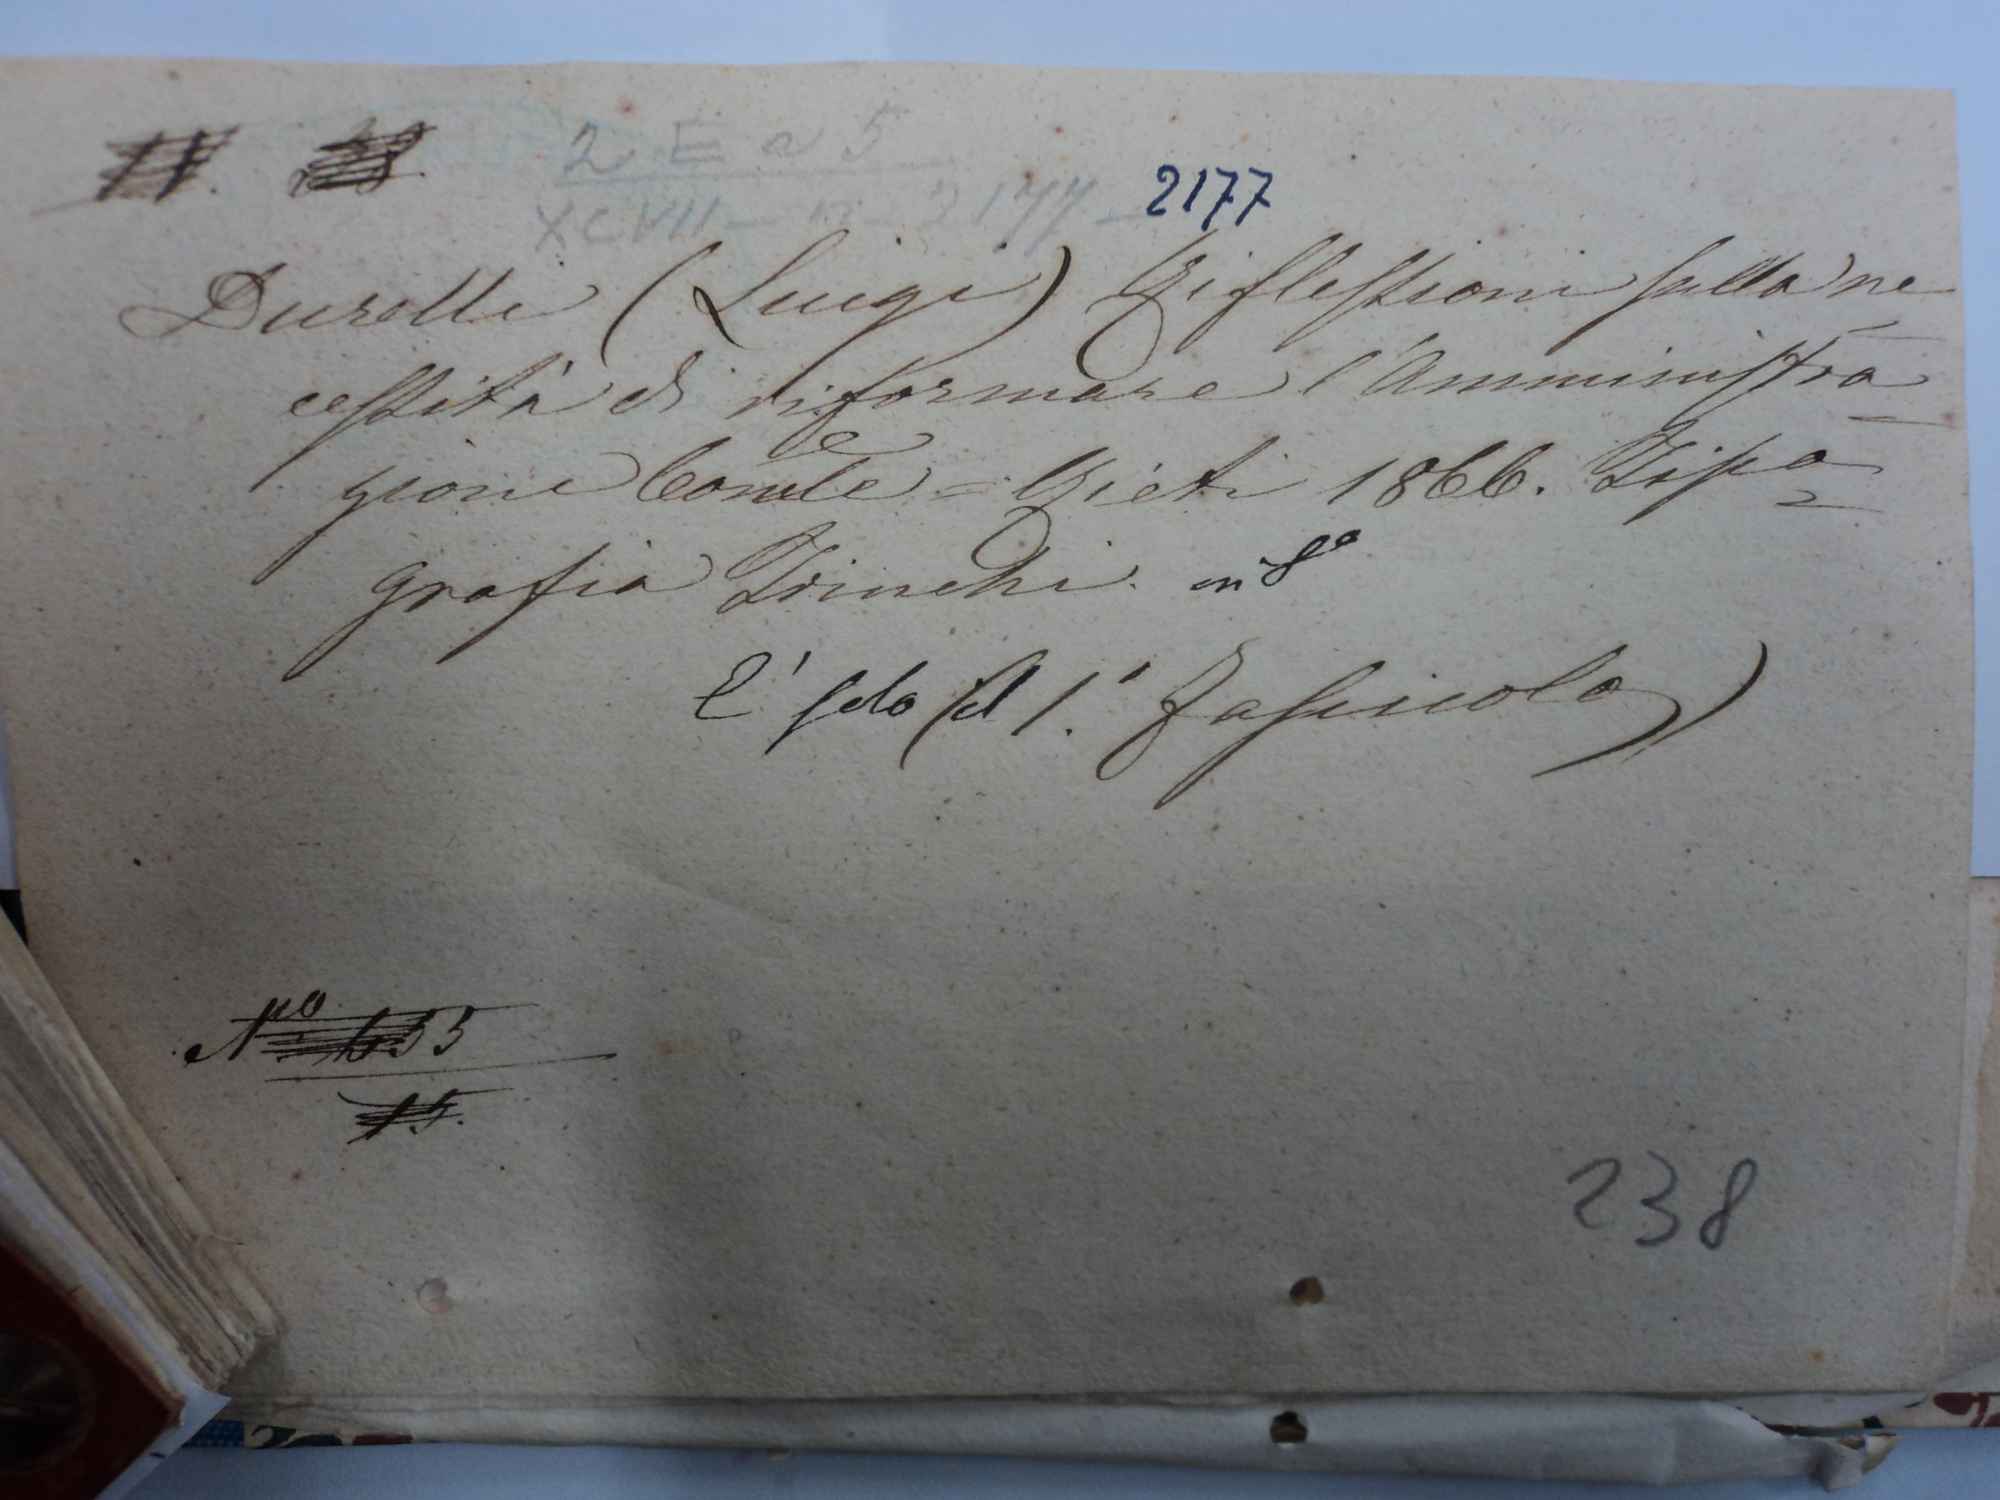 2 E a 5
XCVII – 2177 – 2177
Durelli (Luigi) Riflessioni sulla ne
cessità di riformare l'Amministra=
zione Comle = Rieti 1866. Tipo=
grafia Trinchi. in 8°
È solo (il 1.° Fascicolo)
No 155
15.
238